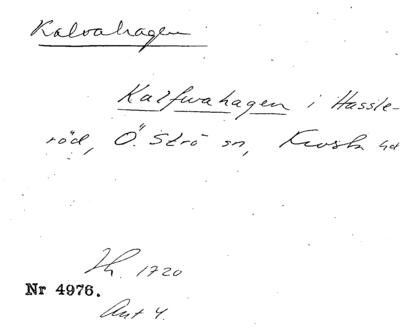 Kalvahagen
Kalfwahagen i Hassle-
röd, Ö. Strö sn, hd
1720
Nr 4976.